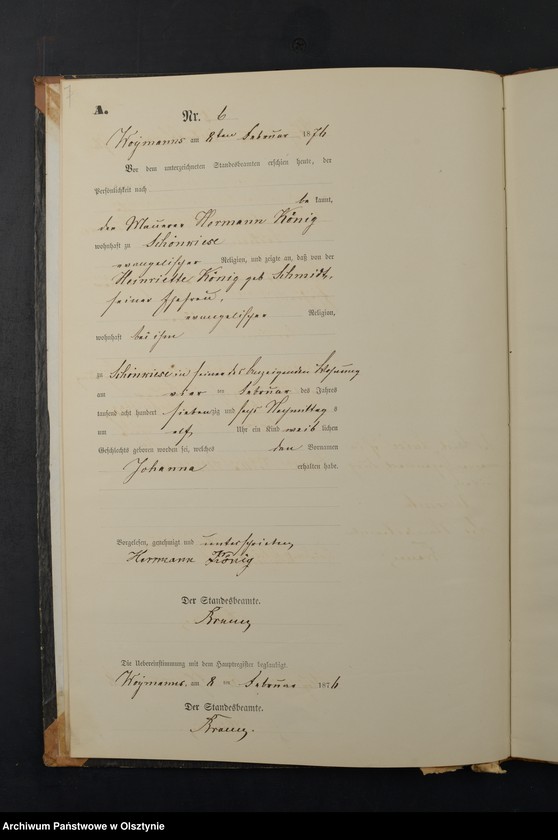 7
A.
Nr. 6
Woymanns am 8ten Februar 1876
Vor dem unterzeichneten Standesbeamten erschien heute, der
Persönlichkeit nach
bekannt,
der Maurer Hermann König
wohnhaft zu Schönwiese
evangelischer Religion, und zeigte an, daß von der
Heinriette König geb Schmidt,
seiner Ehefrau,
evangelischer Religion,
wohnhaft bei ihm
zu Schönwiese in seiner des Anzeigenden Wohnung
am vier ten Februar des Jahres
tausend acht hundert siebenzig und sechs Nachmittags
um elf Uhr ein Kind weiblichen
Geschlechts geboren worden sei, welches den Vornamen
Johanna erhalten habe.
Vorgelesen, genehmigt und unterschrieben
Hermann König
Der Standesbeamte.
Die Uebereinstimmung mit dem Hauptregister beglaubigt.
Woymanns am 8 ten Februar 1876
Der Standesbeamte.
Archiwum Państwowe w Olsztynie